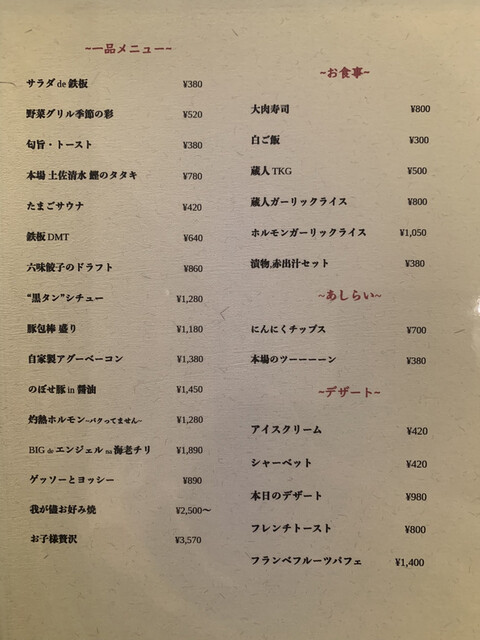 ~一品メニュー~
サラダ de 鉄板 ¥380
野菜グリル季節の彩 ¥520
旬旨・トースト ¥380
本場 土佐清水 鰹のタタキ ¥780
たまごサウナ ¥420
鉄板 DMT ¥640
六味餃子のドラフト ¥860
“黒タン”シチュー ¥1,280
豚包棒 盛り ¥1,180
自家製アグーベーコン ¥1,380
のぼせ豚 in 醤油 ¥1,450
灼熱ホルモン~バクってません~ ¥1,280
BIG de エンジェル na 海老チリ ¥1,890
ゲッソーとヨッシー ¥890
我が儘お好み焼 ¥2,500〜
お子様贅沢 ¥3,570
~お食事~
大肉寿司 ¥800
白ご飯 ¥300
蔵人 TKG ¥500
蔵人ガーリックライス ¥800
ホルモンガーリックライス ¥1,050
漬物,赤出汁セット ¥380
~あしらい~
にんにくチップス ¥700
本場のツーーーーン ¥380
~デザート~
アイスクリーム ¥420
シャーベット ¥420
本日のデザート ¥980
フレンチトースト ¥800
フランベフルーツパフェ ¥1,400